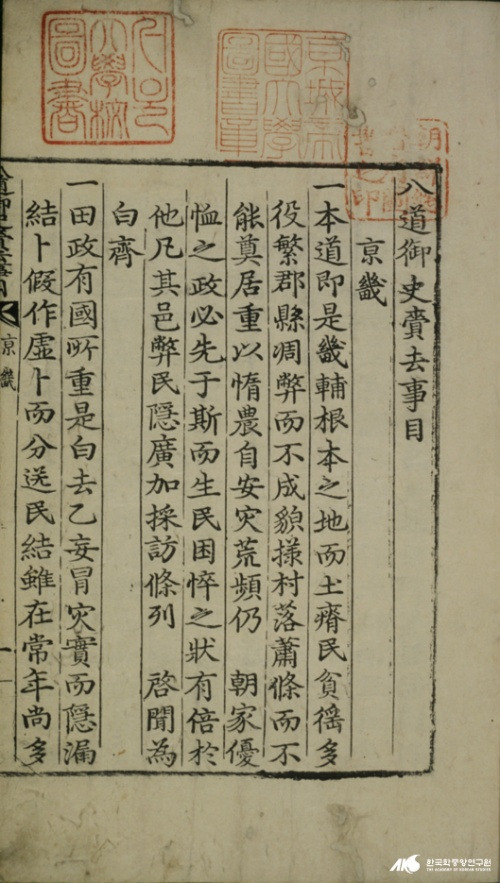 八道御史賷去事目
京畿
一本道即是畿輔根本之地而土瘠民貧徭多
役繁郡縣凋弊而不成貌㨾村落蕭條而不
能奠居重以惰農自安灾荒頻仍 朝家優
恤之政必先于斯而生民困悴之狀有倍於
他凡其邑弊民隱廣加採訪條列 啓聞為
白齊
一田政有國所重是白去乙妄冒灾實而隱漏
結卜假作虛卜而分送民結雖在常年尚多
京畿
一
京城帝
國大學
圖書章
大學校
圖書
한국학중앙연구원
THE ACADEMY OF KOREAN STUDIES